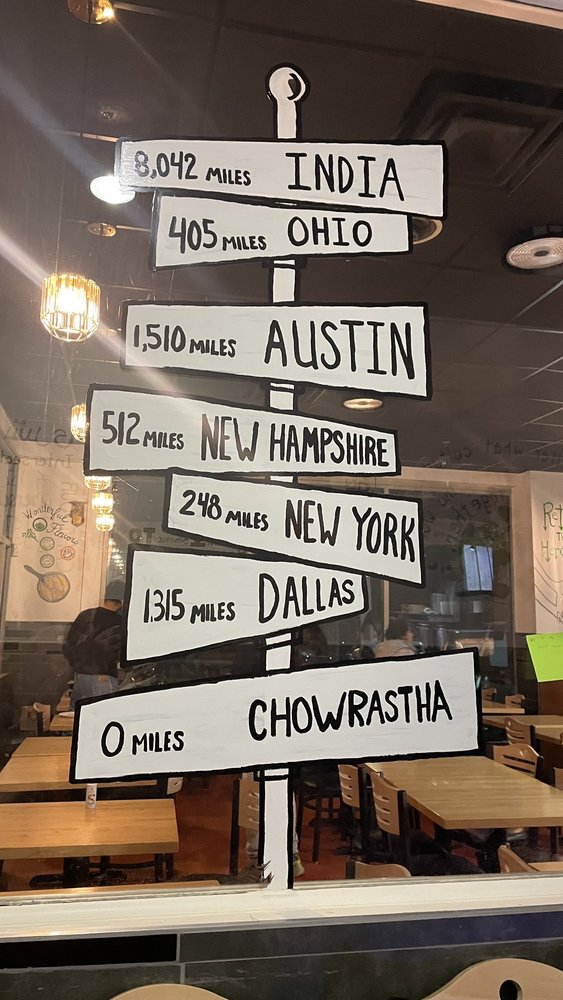 8,042 MILES INDIA
405 MILES OHIO
1,510 MILES AUSTIN
512 MILES NEW HAMPSHIRE
248 MILES NEW YORK
1315 MILES DALLAS
0 MILES CHOWRASTHA
Wonderful
Flavors